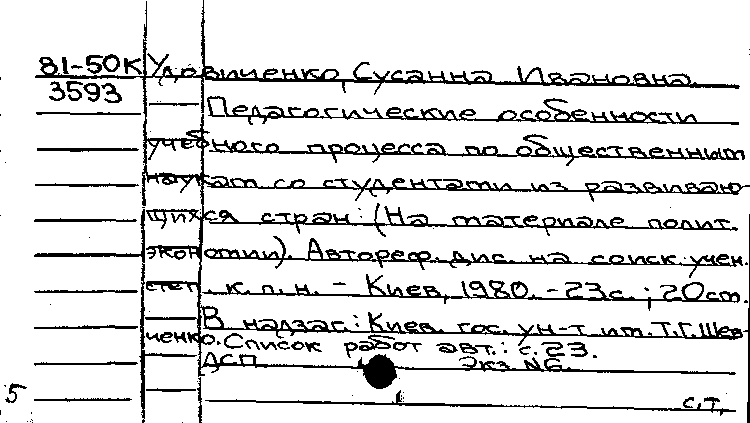 81-50К Удовиченко, Сусанна Ивановна.
3593 Педагогические особенности
учебного процесса по общественным
наукам со студентами из развиваю-
щихся стран: (На материале полит.
экономии). Автореф. дис. на соиск. учен.
степ. к.п.н. - Киев, 1980. - 23с.; 20см.
В надзаг.: Киев. гос. ун-т им. Т.Г. Шев-
ченко. Список работ авт.: с. 23.
ДСП Экз. №6.
5 с.т.